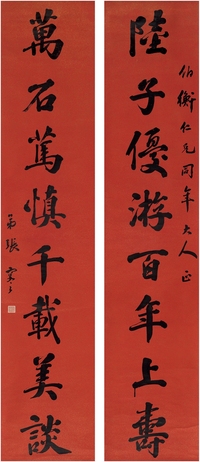 伯衡仁兄同年大人正
陸子優游百年上壽
萬石篤慎千載美談
弟張